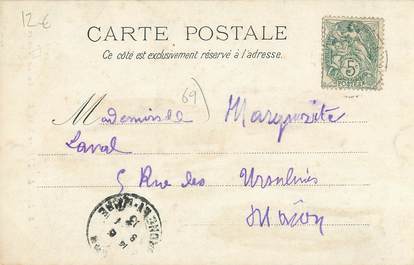 12 €
CARTE POSTALE
Ce côté est exclusivement réservé à l'adresse.
5
POSTES
69
Mademoiselle Marguerite
Laval
5 Rue des Ursulines
Mâcon
SAONE-ET-LOIRE